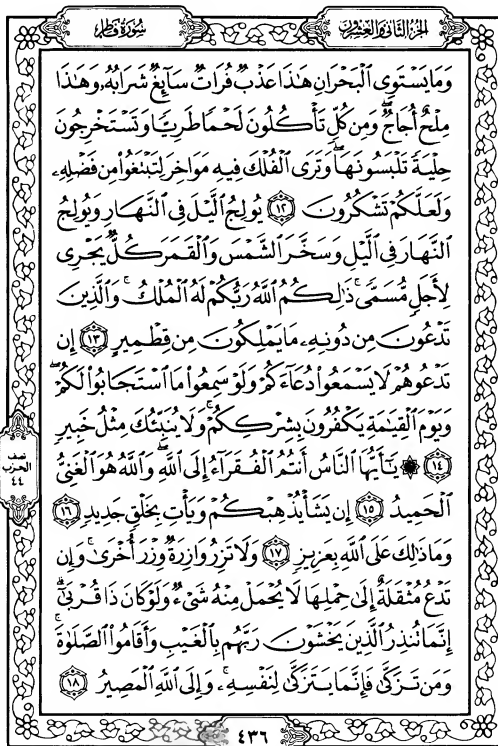 سُورَةُ فَاطِر
الجُزْءُ الثَّانِي وَالعِشْرُونَ
وَمَا يَسْتَوِي ٱلْبَحْرَانِ هَٰذَا عَذْبٌ فُرَاتٌ سَآئِغٌ شَرَابُهُۥ وَهَٰذَا
مِلْحٌ أُجَاجٌ ۖ وَمِن كُلٍّ تَأْكُلُونَ لَحْمًا طَرِيًّا وَتَسْتَخْرِجُونَ
حِلْيَةً تَلْبَسُونَهَا ۖ وَتَرَى ٱلْفُلْكَ فِيهِ مَوَاخِرَ لِتَبْتَغُوا۟ مِن فَضْلِهِۦ
وَلَعَلَّكُمْ تَشْكُرُونَ ١٢ يُولِجُ ٱلَّيْلَ فِى ٱلنَّهَارِ وَيُولِجُ
ٱلنَّهَارَ فِى ٱلَّيْلِ وَسَخَّرَ ٱلشَّمْسَ وَٱلْقَمَرَ كُلٌّ يَجْرِى
لِأَجَلٍ مُّسَمًّى ۚ ذَٰلِكُمُ ٱللَّهُ رَبُّكُمْ لَهُ ٱلْمُلْكُ ۚ وَٱلَّذِينَ
تَدْعُونَ مِن دُونِهِۦ مَا يَمْلِكُونَ مِن قِطْمِيرٍ ١٣ إِن
تَدْعُوهُمْ لَا يَسْمَعُوا۟ دُعَآءَكُمْ وَلَوْ سَمِعُوا۟ مَا ٱسْتَجَابُوا۟ لَكُمْ ۖ
وَيَوْمَ ٱلْقِيَٰمَةِ يَكْفُرُونَ بِشِرْكِكُمْ ۚ وَلَا يُنَبِّئُكَ مِثْلُ خَبِيرٍ
١٤ ۞ يَٰٓأَيُّهَا ٱلنَّاسُ أَنتُمُ ٱلْفُقَرَآءُ إِلَى ٱللَّهِ ۖ وَٱللَّهُ هُوَ ٱلْغَنِىُّ
ٱلْحَمِيدُ ١٥ إِن يَشَأْ يُذْهِبْكُمْ وَيَأْتِ بِخَلْقٍ جَدِيدٍ ١٦
وَمَا ذَٰلِكَ عَلَى ٱللَّهِ بِعَزِيزٍ ١٧ وَلَا تَزِرُ وَازِرَةٌ وِزْرَ أُخْرَىٰ ۚ وَإِن
تَدْعُ مُثْقَلَةٌ إِلَىٰ حِمْلِهَا لَا يُحْمَلْ مِنْهُ شَىْءٌ وَلَوْ كَانَ ذَا قُرْبَىٰٓ ۗ
إِنَّمَا تُنذِرُ ٱلَّذِينَ يَخْشَوْنَ رَبَّهُم بِٱلْغَيْبِ وَأَقَامُوا۟ ٱلصَّلَوٰةَ ۚ
وَمَن تَزَكَّىٰ فَإِنَّمَا يَتَزَكَّىٰ لِنَفْسِهِۦ ۚ وَإِلَى ٱللَّهِ ٱلْمَصِيرُ ١٨
نصف
الحزب
٤٤
٤٣٦